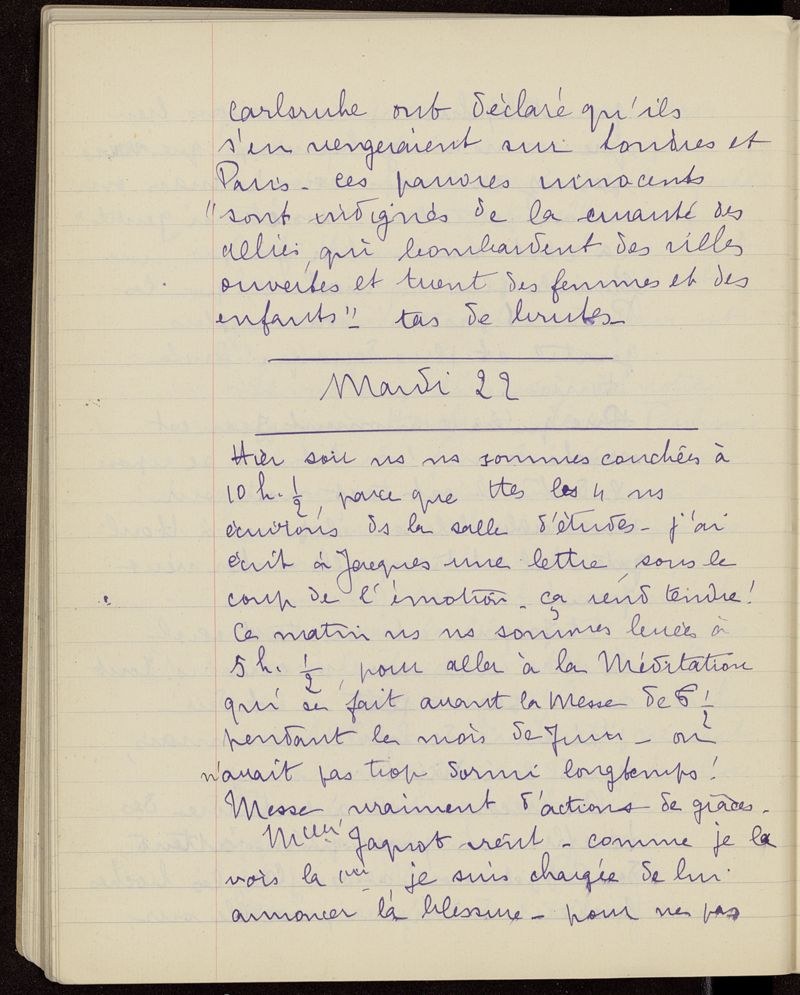 Carlsruhe ont déclaré qu'ils
s'en vengeraient sur Londres et
Paris - ces pauvres innocents
"sont indignés de la cruauté des
alliés, qui bombardent des villes
ouvertes et tuent des femmes et des
enfants" tas de brutes -
Mardi 22
Hier soir ns ns sommes couchées à
10 h. 1/2, parce que ttes les 4 ns
écrivions ds la salle d'études - j'ai
écrit à Jacques une lettre, sous le
coup de l'émotion - ça rend tendre!
Ce matin ns ns sommes levées à
5 h. 1/2, pour aller à la Méditation
qui se fait avant la Messe de 6 1/2
pendant le mois de Juin - on
n'avait pas trop dormi longtemps!
Messe, vraiment d'actions de grâces -
Jaquot vient - comme je la
vois la 1ère, je suis chargée de lui
annoncer la blessure - pour ne pas